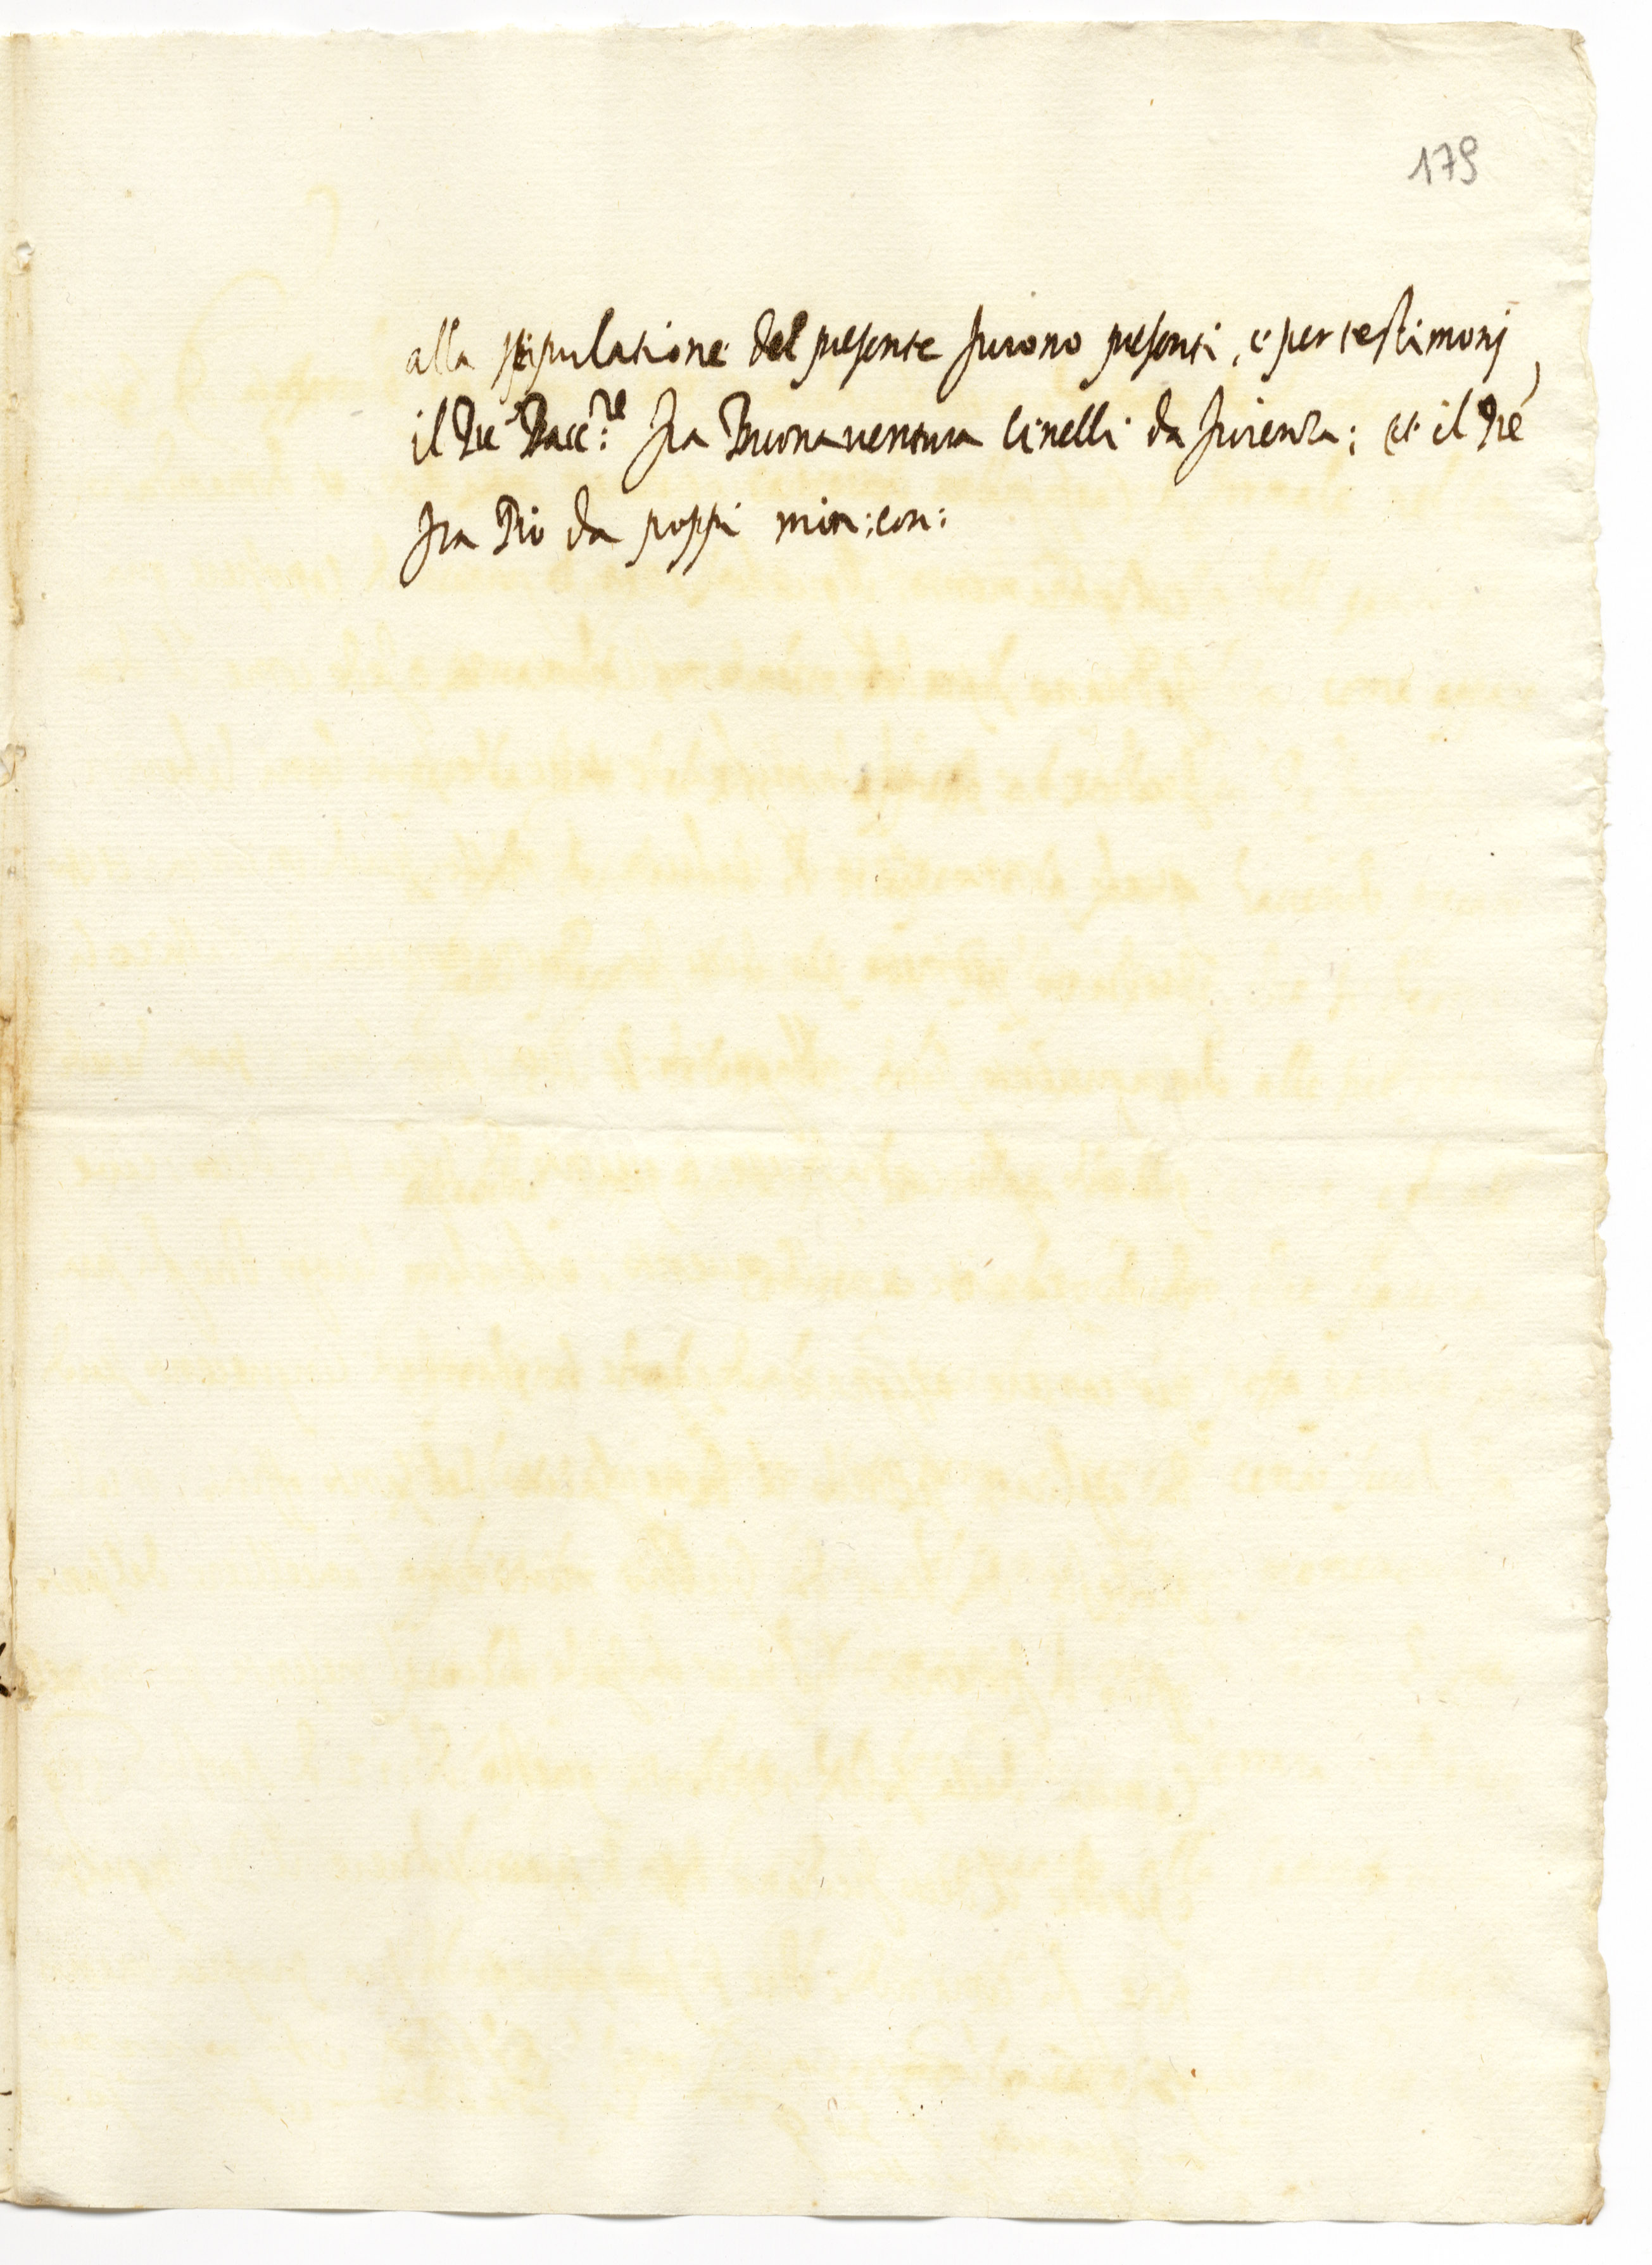 179
alla stipulatione del presente furono presenti, e per testimonj
il Pre Bacc:re fra Buonaventura Cinelli da firenza; et il Pre
fra Pio da poppi min: con: